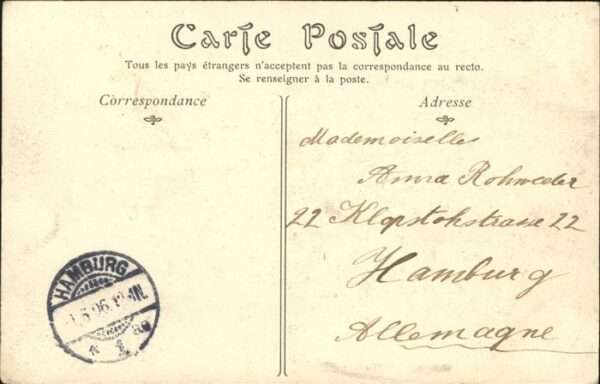 Carte Postale
Tous les pays étrangers n'acceptent pas la correspondance au recto.
Se renseigner à la poste.
Correspondance
Adresse
Mademoiselle
Anna Rohweder
22 Klopstokstrasse 22
Hamburg
Allemagne
HAMBURG